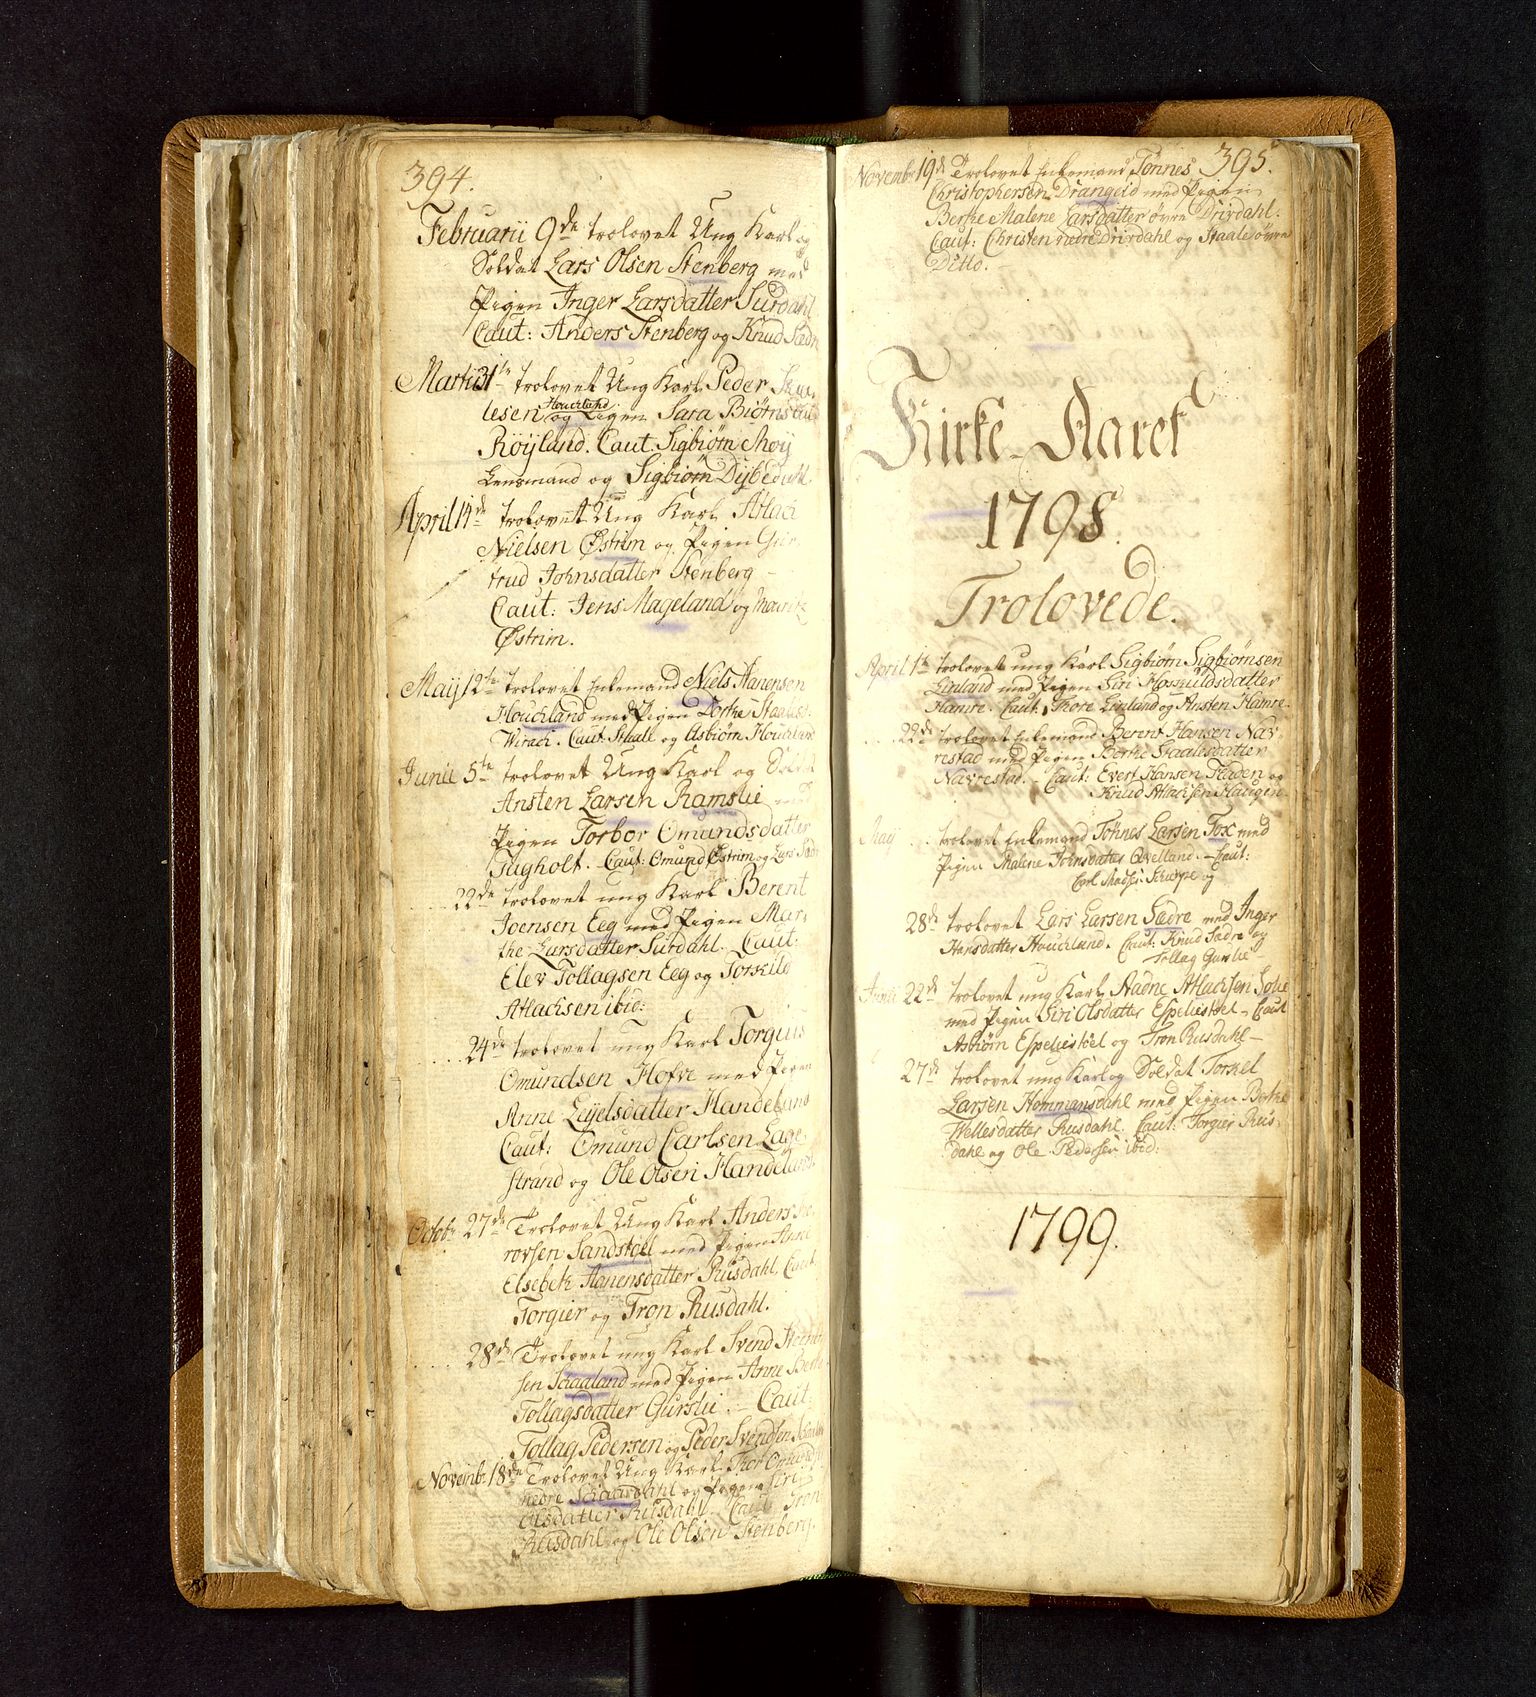 394.
Februarii 9de trolovet Ung Karl og
Soldat Lars Olsen Stenberg med
Pigen Inger Larsdatter Surdahl
Caut: Anders Stenberg og Knud Sædr
Martii 31te trolovet Ung Karl Peder
lesen Houchland og Pigen Sara Biørnsdat
Röyland. Caut. Sigbiørn Moy
Lensmand og Sigbiørn Dybedahl.
April 14de trolovet Ung Karl Atlach
Nielsen Østrim og Pigen Gier
trud Johnsdatter Stenberg
Caut: Jens Mageland og Mouritz
Østrim.
Maij 12te trolovet Enkemand Niels Aanensen
Houchland med Pigen Dorthe Staalesd.
Wirach. Caut: Staale og Asbiørn Houchland
Junii 5te trolovet Ung Karl og Soldat
Ansten Larsen Ramslie med
Pigen Torbor Omundsdatter
Fugholt. Caut: Omund Østrim og Lars Sædr
22de trolovet ung Karl Berent
Joensen Eeg med Pigen Mar,
the Larsdatter Surdahl. Caut:
Elev Tollagsen Eeg og Torkild
Atlachsen ibid:
24de trolovet ung Karl Torgius
Omundsen Hofve med Pigen
Anne Leijelsdatter Handeland
Caut: Omund Carlsen Lage
strand og Ole Olsen Handeland
Octobr 27de Trolovet Ung Karl Anders
rovsen Sandstöel med Pigen Anne
Elsebeh Aanensdatter Rusdahl. Caut.
Torgier og Tron Rusdahl.
28de Trolovet ung Karl Svend
sen Scaaland med Pigen Anne Berthe
Tollagsdatter Gurslie. - Caut:
Tollag Pedersen og Peder Svendsen
Novembr 18de Trolovet Ung Karl Thor Omunds
nedre Schaardahl og Pigen Siri
Olsdatter Rusdahl Caut Tron
Rusdahl og Ole Olsen Stenberg.
395.
Novembr 19de Trolovet Enkemand Tønnes
Christophersen Drangeid med Pigen
Berthe Malene Larsdatter øvre Drivdahl.
Caut: Christen nedre Drivdahl og Staale øvre
Ditto.
Kirke-Aaret
1798.
Trolovede.
April 1te trolovet ung Karl Sigbiørn Sigbiørnsen
Linland med Pigen Siri Haavuldsdatter
Hamre. Caut: Thore Linland og Ansten Hamre.
22de trolovet Enkemand Berent Hansen Nav,
restad med Pigen Berthe Staalesdatter
Navrestad. - Caut: Evert Hansen Fladen og
Knud Atlachsen Haugen
Maij trolovet Enkemand Tönnes Larsen Fox med
Pigen Malene Johnsdatter Qvelland. - Caut:
Carl Madsen og
28de trolovet Lars Larsen Sædre med Inger
Hansdatter Houchland. Caut: Knud Sædre og
Tollag Gurslie
Junii 22de trolovet ung Karl Aadne Atlachsen
med Pigen Siri Olsdatter Espelistöel - Caut
Asbiörn Espelistöel og Tron Rusdahl -
27de trolovet ung Karl og Soldat Torkel
Larsen Hommansdahl med Pigen Berthe
Wellesdatter Rusdahl. Caut: Torgier Rus,
dahl og Ole Pedersen ibid:
1799.